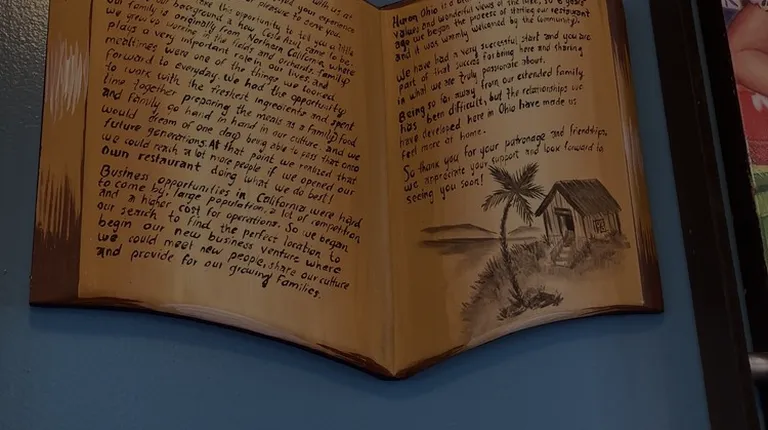 with us at
your experience
pleasure to serve you.
this opportunity to tell you a little
our background & how Casa Azul came to be.
Our family is originally from Northern California, where
we grew up working in the fields and orchards. Family
plays a very important role in our lives and
mealtimes were one of the things we looked
forward to everyday. We had the opportunity
to work with the freshest ingredients and spent
time together preparing the meals as a family. Food
and family go hand in hand in our culture, and we
would dream of one day being able to pass that onto
future generations. At that point we realized that
we could reach a lot more people if we opened our
own restaurant doing what we do best!
Business opportunities in California were hard
to come by, large population, a lot of competition
and a higher cost for operations. So we began
our search to find the perfect location to
begin our new business venture where
we could meet new people, share our culture
and provide for our growing families.
Huron Ohio is a
values and wonderful views of the lake, so 6 years
ago we began the process of starting our restaurant
and it was warmly welcomed by the community.
We have had a very successful start and you are
part of that success for being here and sharing
in what we are truly passionate about.
Being so far away from our extended family
has been difficult, but the relationships we
have developed here in Ohio have made us
feel more at home.
So thank you for your patronage and friendship,
we appreciate your support and look forward to
seeing you soon!